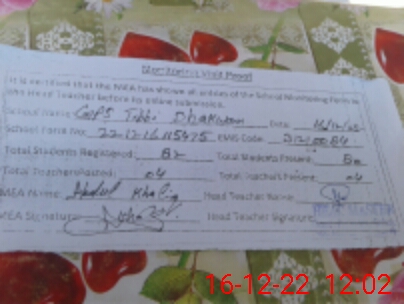 Monitoring Visit Proof
It is certified that the MEA has shown all entries of the School Monitoring Form to
Head Teacher before its online submission.
School Name: GGPS Tibbi Date: 16/12/22
School Form No: 22-12-16 EMIS Code:
Total Students Registered: 82 Total Students Present: 80
Total Teachers Posted: 04 Total Teachers Present: 04
MEA Name: Abdul Khaliq Head Teacher Name:
MEA Signature: Head Teacher Signature:
16-12-22 12:02